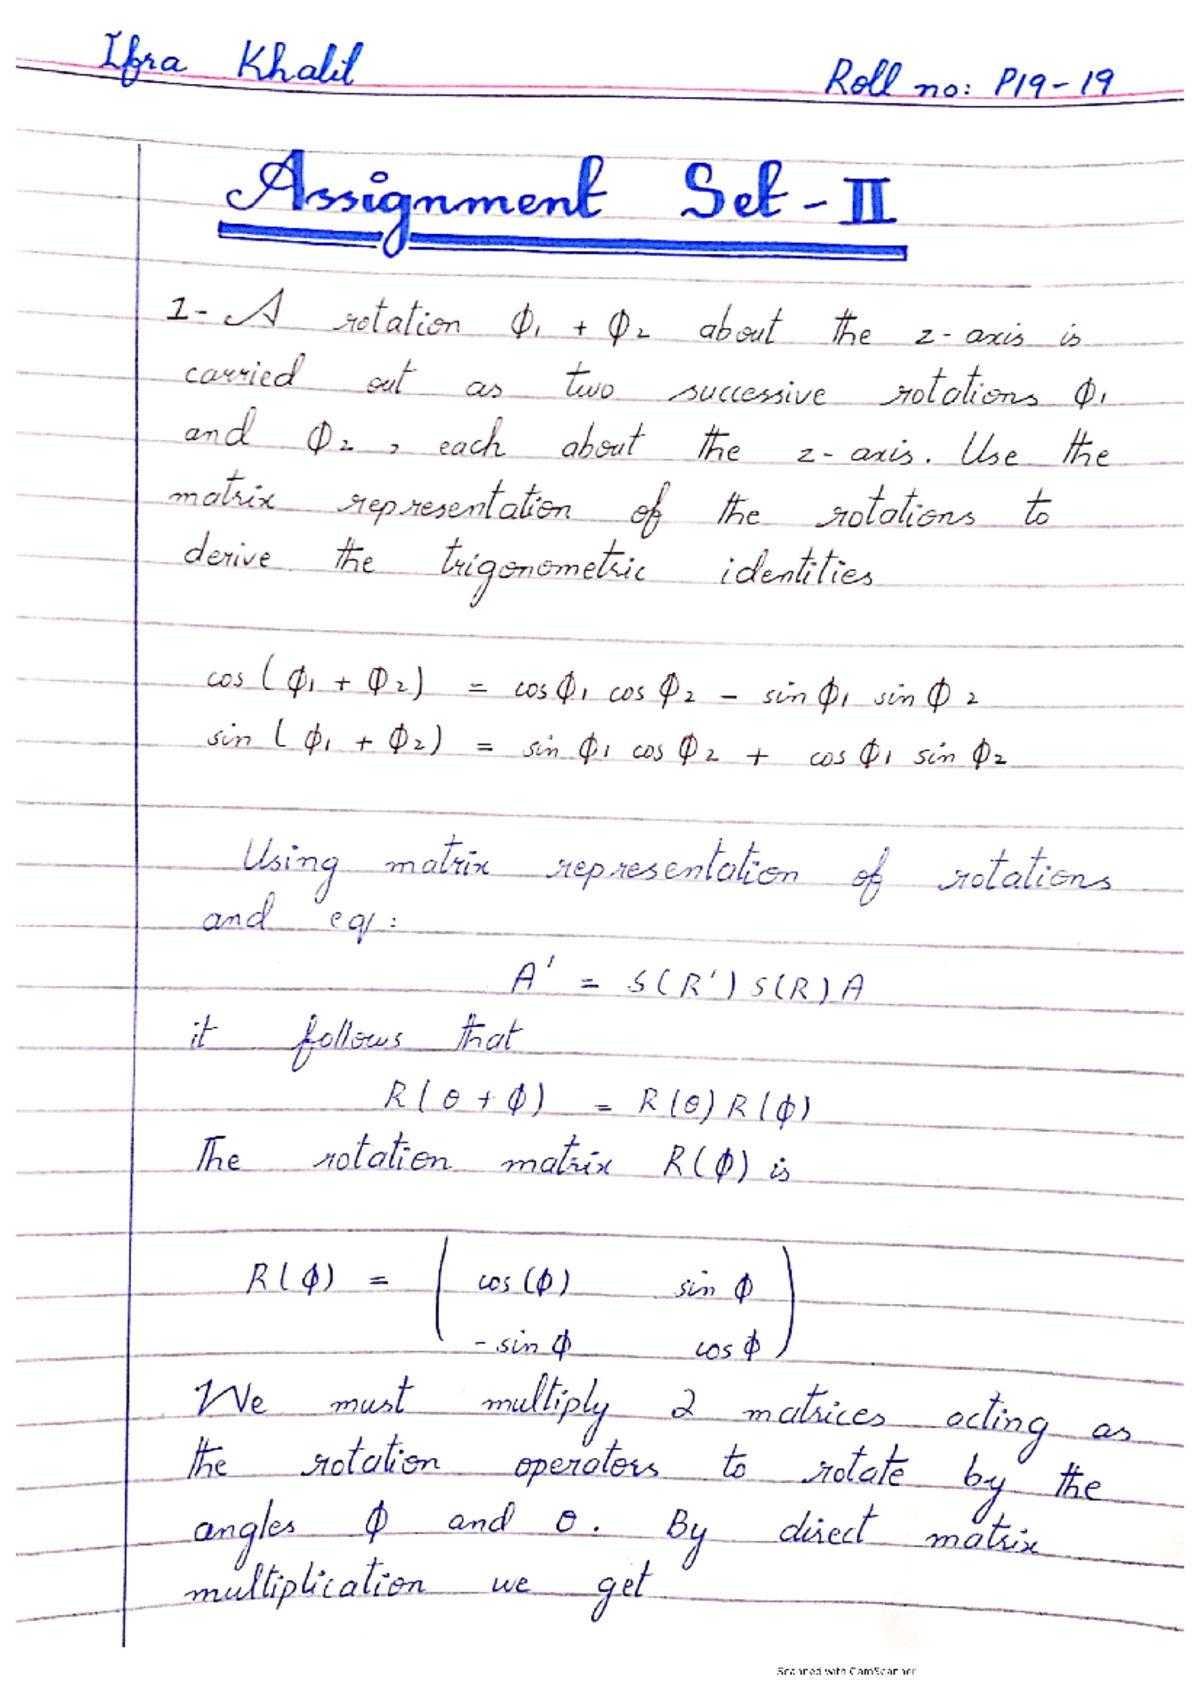 Ifra Khalil Roll no: P19-19
Assignment Set - II
1- A rotation Φ₁ + Φ₂ about the z-axis is
carried out as two successive rotations Φ₁
and Φ₂ , each about the z-axis. Use the
matrix representation of the rotations to
derive the trigonometric identities
cos (Φ₁ + Φ₂) = cos Φ₁ cos Φ₂ - sin Φ₁ sin Φ₂
sin (Φ₁ + Φ₂) = sin Φ₁ cos Φ₂ + cos Φ₁ sin Φ₂
Using matrix representation of rotations
and eq:
A' = S(R') S(R) A
it follows that
R(θ + Φ) = R(θ) R(Φ)
The rotation matrix R(Φ) is
R(Φ) = ( cos (Φ) sin Φ
- sin Φ cos Φ )
We must multiply 2 matrices acting as
the rotation operators to rotate by the
angles Φ and θ. By direct matrix
multiplication we get
Scanned with CamScanner